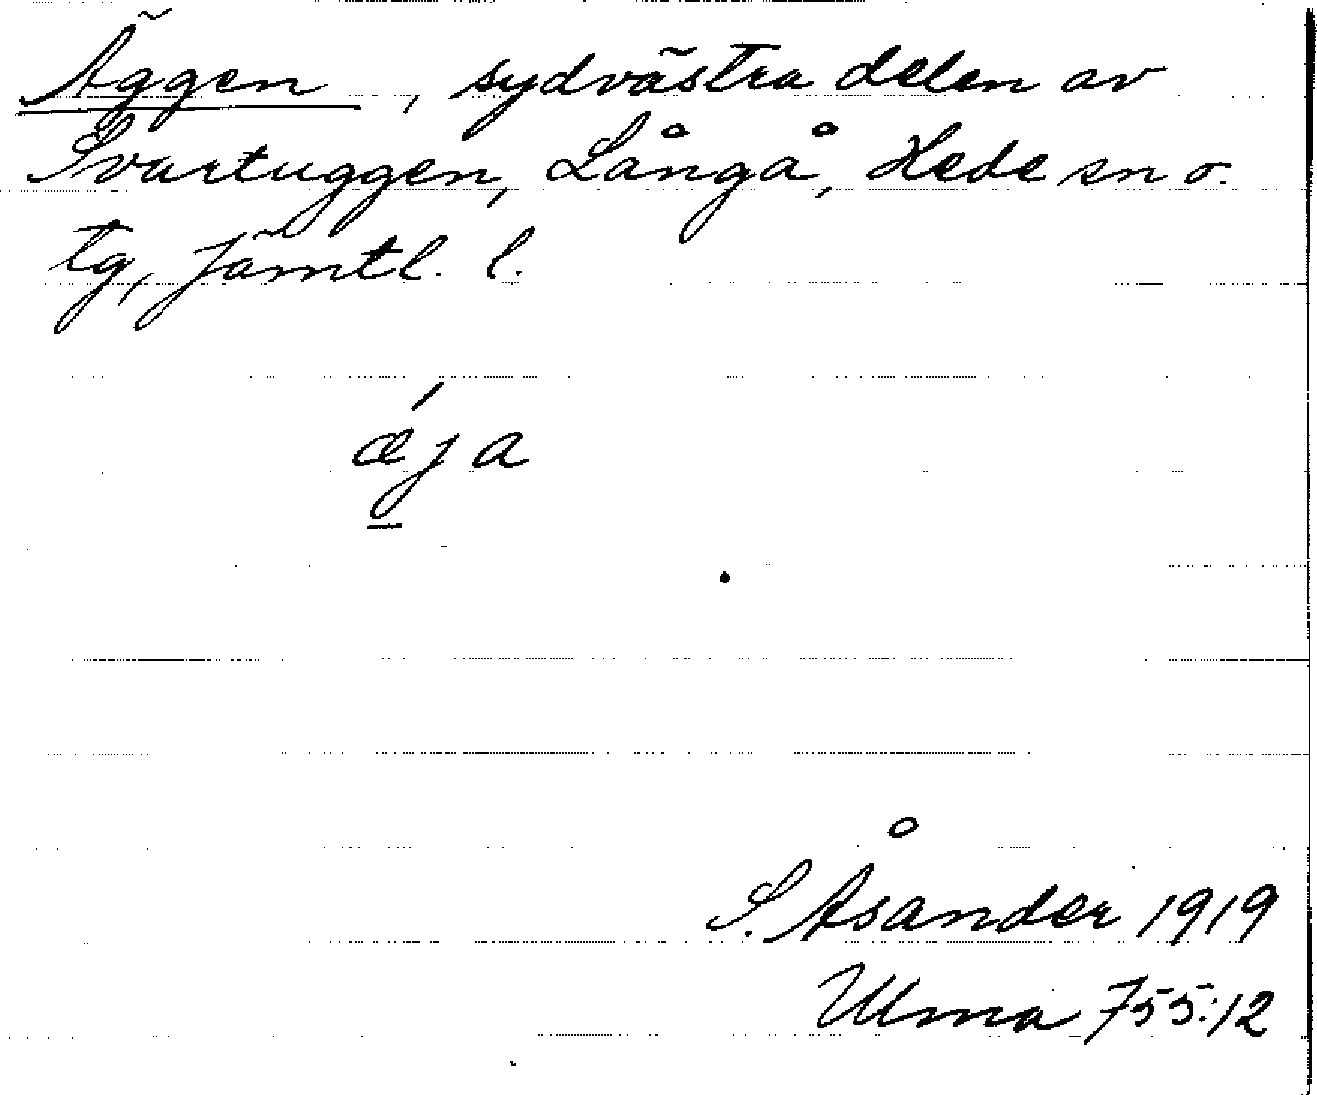 Äggen, sydvästra delen av
Svartuggen, Långå, Hede sn o.
tg, Jämtl. l.
ǽja
S. Åsander 1919
Ulma 755:12